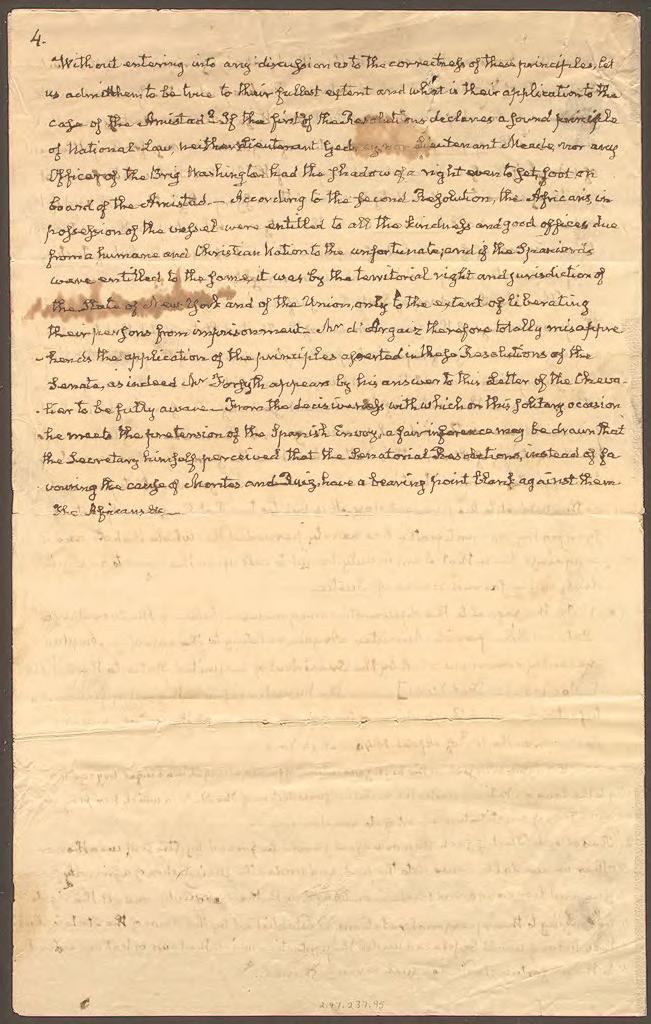 4.
Without entering into any discussion as to the correctness of these principles, let
us admit them to be true to their fullest extent and what is their application to the
case of the Amistad? If the first of the Resolutions declares a sound principle
of National Law neither Lieutenant Gedney nor Lieutenant Meade, nor any
Officer of the Brig Washington had the shadow of a right even to set foot on
board of the Amistad. — According to the second Resolution, the Africans, in
possession of the vessel were entitled to all the kindness and good offices due
from a humane and Christian Nation to the unfortunate; and if the Spaniards
were entitled to the same, it was by the territorial right and jurisdiction of
the State of New-York and of the Union, only to the extent of liberating
their persons from imprisonment. Mr d'Argaiz therefore totally misappre-
-hends the application of the principles asserted in these Resolutions of the
Senate, as indeed Mr Forsyth appears by his answer to this Letter of the Cheva-
-lier to be fully aware — From the decisiveness with which on this solitary occasion
he meets the pretension of the Spanish Envoy, a fair inference may be drawn that
the Secretary himself perceived that the Senatorial Resolutions, instead of fa
vouring the cause of Montes and Ruiz, have a bearing point blank against them
The Africans &c —
2.97.237.95